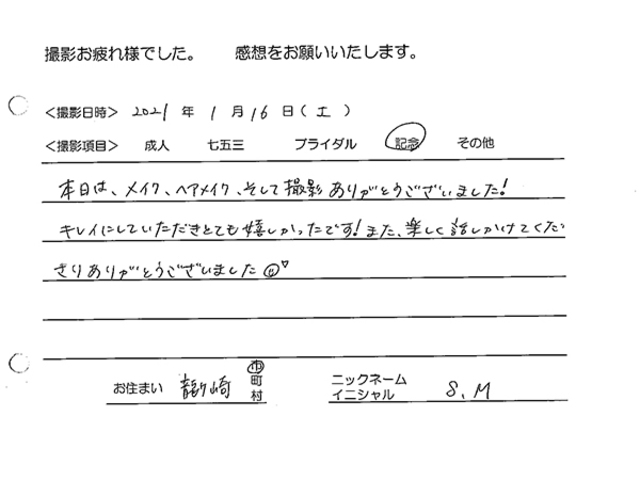 撮影お疲れ様でした。 感想をお願いいたします。
＜撮影日時＞ 2021 年 1 月 16 日(土)
＜撮影項目＞ 成人 七五三 ブライダル 記念 その他
本日は、メイク、ヘアメイク、そして撮影ありがとうございました!
キレイにしていただきとても嬉しかったです!また、楽しく話しかけてくだ
さりありがとうございました
お住まい 龍ケ崎 市町村 ニックネーム イニシャル S.M